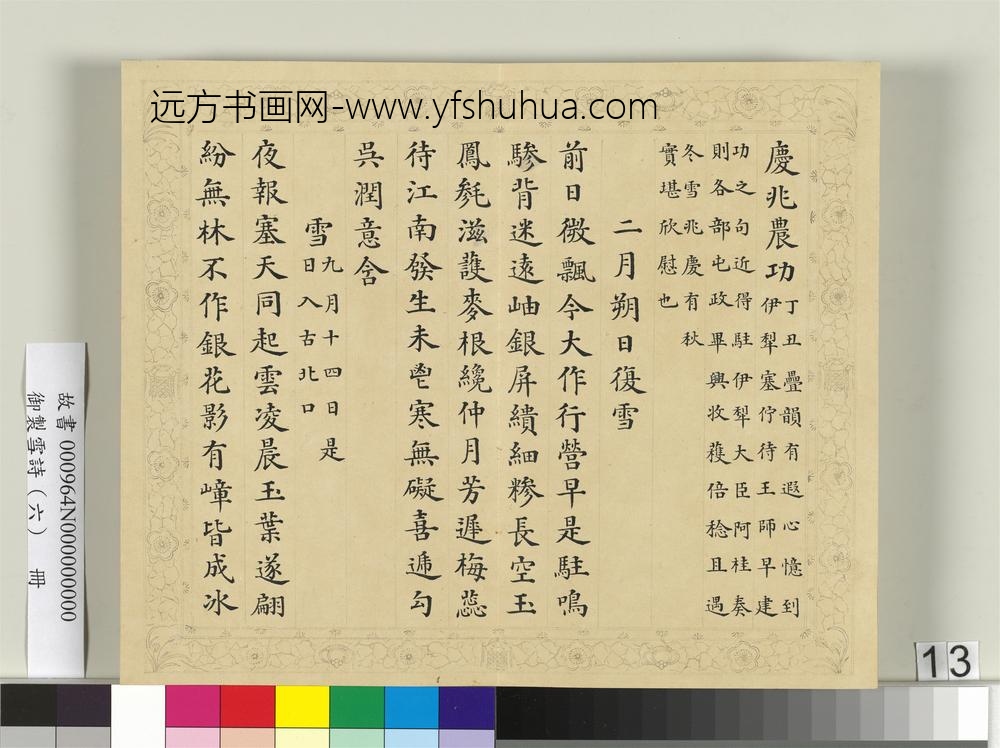 远方书画网-www.yfshuhua.com
慶兆農功
丁丑疊韻有遐心憶到
伊犂塞佇待王師早建
功之句近得駐伊犂大臣阿桂奏
則各部屯政畢興收穫倍稔且遇
冬雪兆慶有秋
實堪欣慰也
二月朔日復雪
前日微飄今大作行營早是駐鳴
驂背迷遠岫銀屏繢細糝長空玉
鳳毿滋䕶麥根纔仲月芳遲梅蕊
待江南發生未鬯寒無礙喜遞勾
吳潤意含
雪
九月十四日是
日入古北口
夜報塞天同起雲凌晨玉葉遂翩
紛無林不作銀花影有嶂皆成冰
故書 000964N000000000
御製雪詩（六） 冊
13